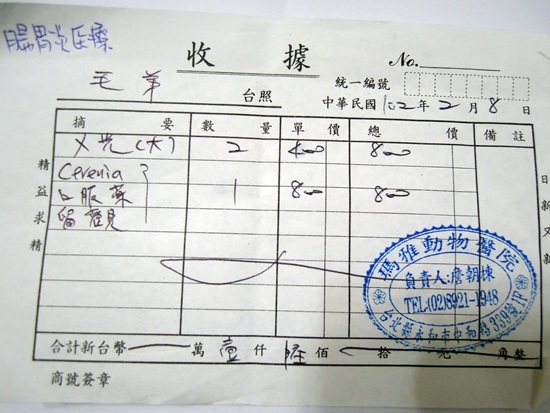 腸胃炎医療
收據 No.
統一編號
毛弟 台照 中華民國102年2月8日
摘要 數量 單價 總價 備註
X光(大) 2 400 800
Cerenia
口服藥 1 800 800
留觀
精益求精
日新又新
瑪雅動物醫院
負責人:詹朝棟
TEL(02)8921-1948
台北縣永和市中和路339號
合計新台幣 萬壹仟陸佰 拾 元 角整
商號簽章